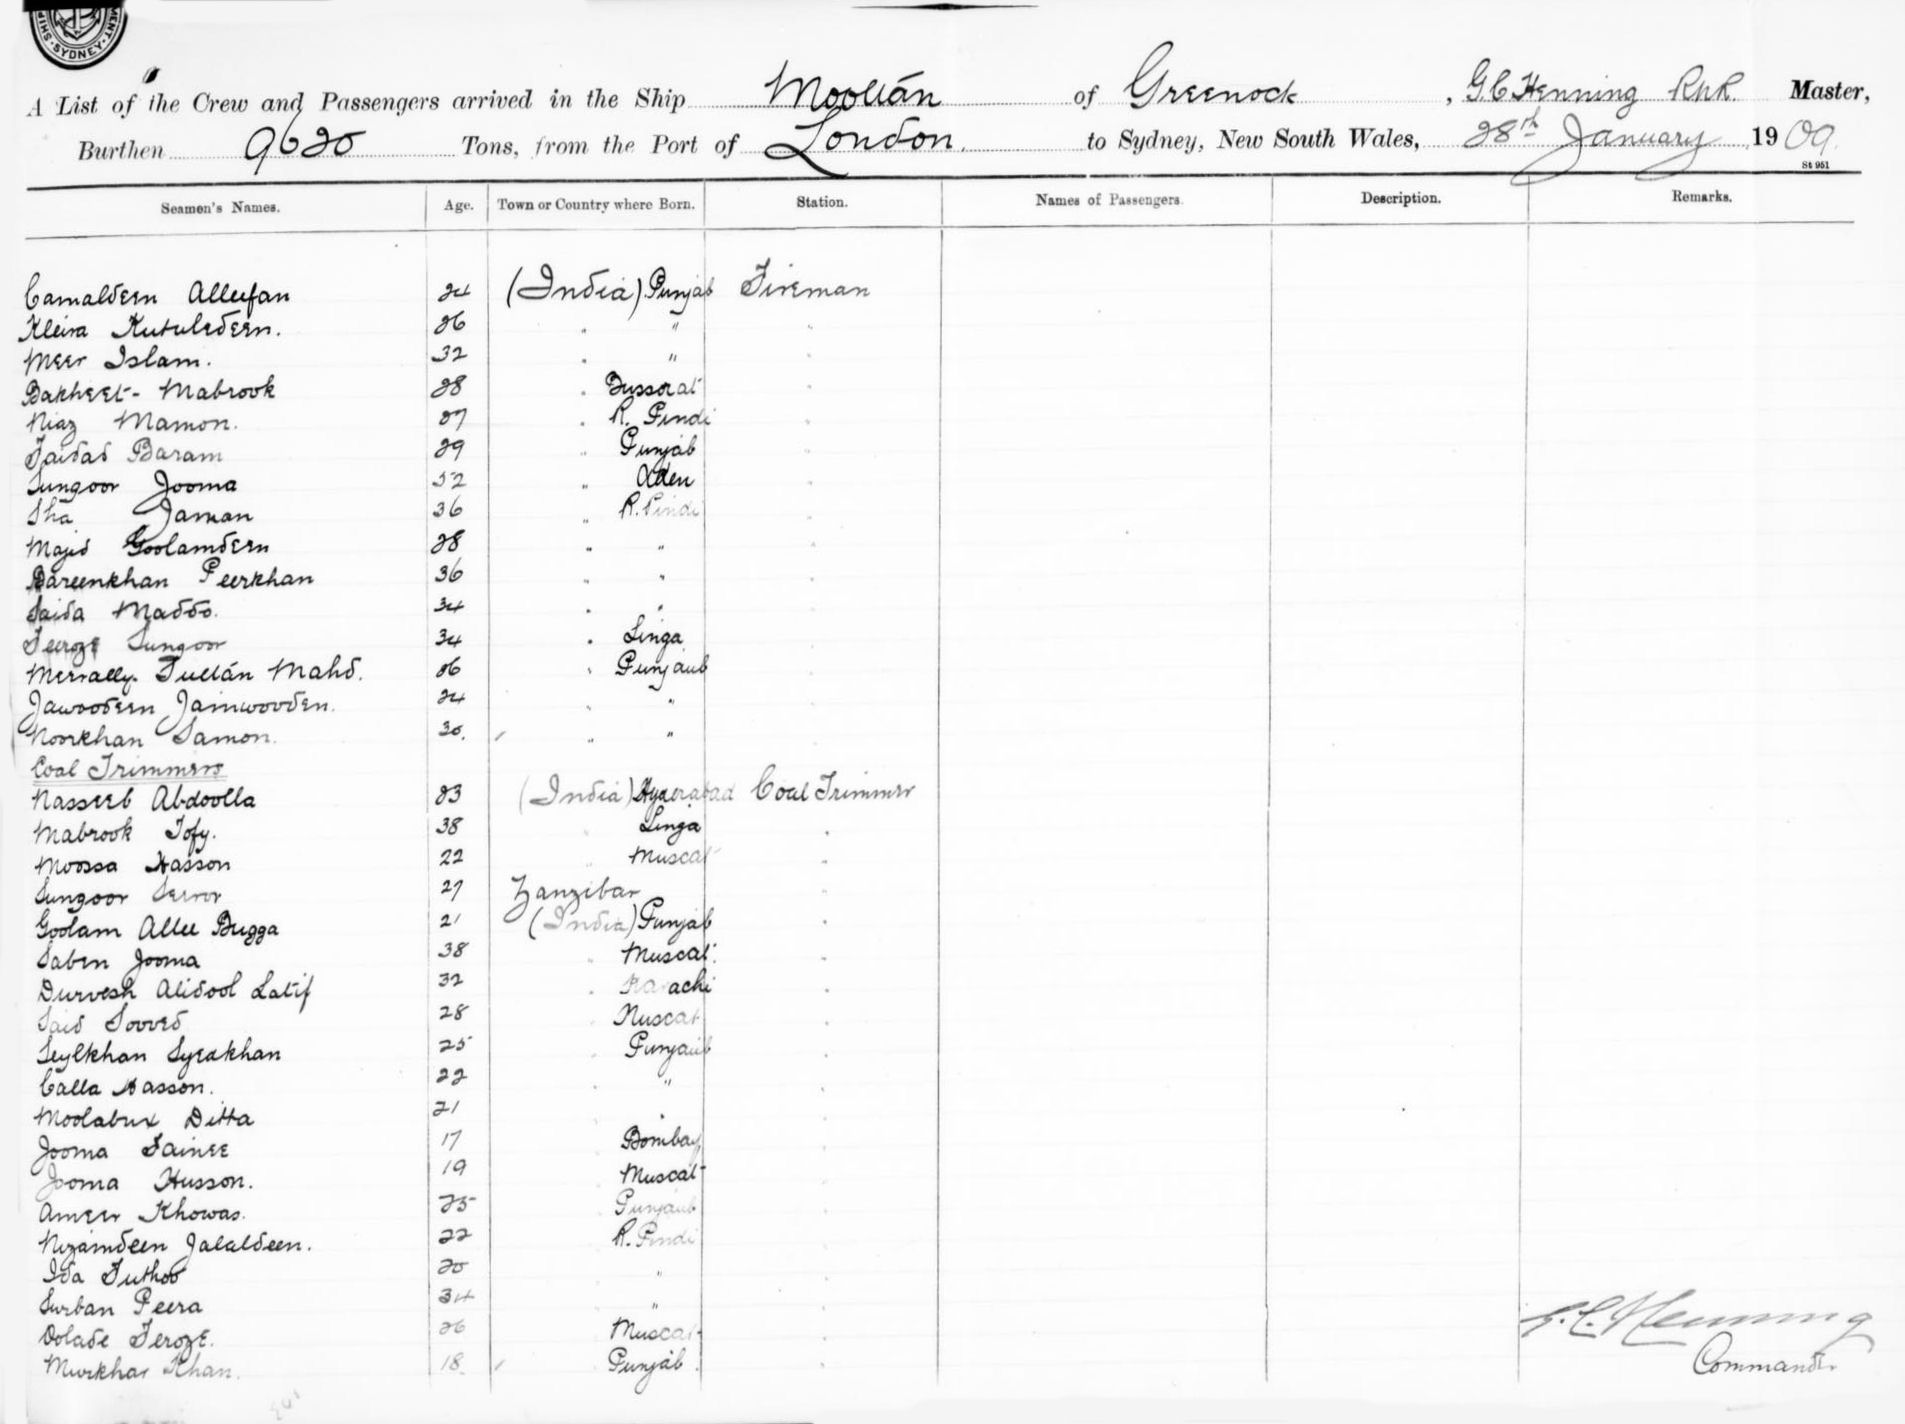 SYDNEY
A List of the Crew and Passengers arrived in the Ship Mooltan of Greenock , G.C Henning RNR Master,
Burthen 9620 Tons, from the Port of London. to Sydney, New South Wales, 28th January 1909
St 951
Seamen's Names. Age. Town or Country where Born. Station. Names of Passengers. Description. Remarks.
Camaldeen Alleefan 24 (India) Punjab Fireman
Kleira Kutuledeen. 26 " "
Meer Islam. 32 " "
Bakheet- Mabrook 28 " Bussorat
Niaz Mamon. 27 " R. Pindi
Jaidad Baram 29 " Punjab
Sungoor Jooma 52 " Aden
Sha Jaman 36 " R. Pindi
Majid Goolamdeen 28 " "
Bareenkhan Peerkhan 36 " "
Saida Maddo. 34 " "
Feroze Sungoor 34 " Linga
Merrally Sultan Mahd. 26 " Punjaub
Jawoodeen Jainwooden. 24 " "
Noorkhan Samon. 30. " "
Coal Trimmers
Nasseeb Abdoolla 23 (India) Hyderabad Coal Trimmer
Mabrook Tofy. 38 " Linga "
Moossa Hasson 22 " Muscat "
Sungoor Seroor 27 Zanzibar "
Goolam Allee Bugga 21 (India) Punjab "
Saben Jooma 38 " Muscat. "
Durvesh Alidool Latif 32 " Karachi "
Said Sooved 28 " Muscat "
Seylkhan Syeakhan 25 " Punjaub "
Calla Hasson. 22 " "
Moolabux Ditta 21 " "
Jooma Sainee 17 Bombay
Jooma Husson. 19 Muscat
Ameer Khowas. 25 Punjaub
Nizamdeen Jalaldeen. 22 R. Pindi
Ida Futhoo 20 "
Surban Peera 34 "
Dolade Feroze. 26 Muscat
Murkhar Khan. 18. Punjab.
G. C. Henning
Commander